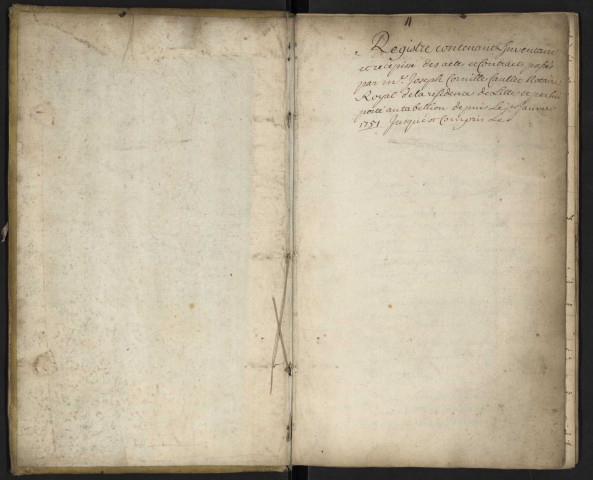 Registre contenant Inventaire
et recepisse des actes et Contracts passés
par Me. Joseph Cornille Notaire
Royal de la residence de Lille et par luy
porté au tabellion depuis Le 1er Janvier
1751 Jusques et Compris Le